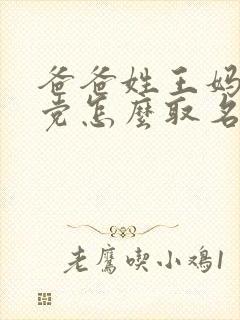 爸爸姓王妈
党怎麼取名
老鷹喫小鸡1